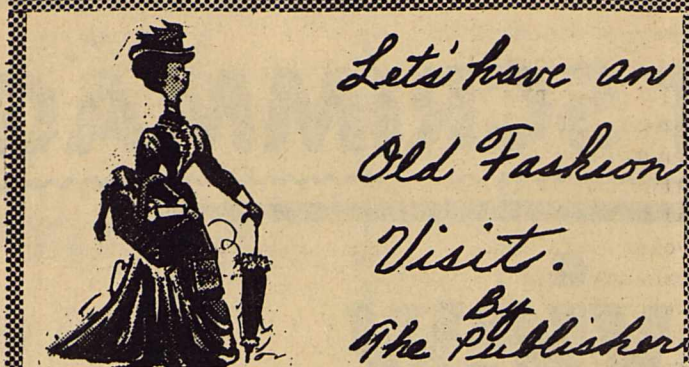 Let's have an
Old Fashion
Visit.
By
The Publisher